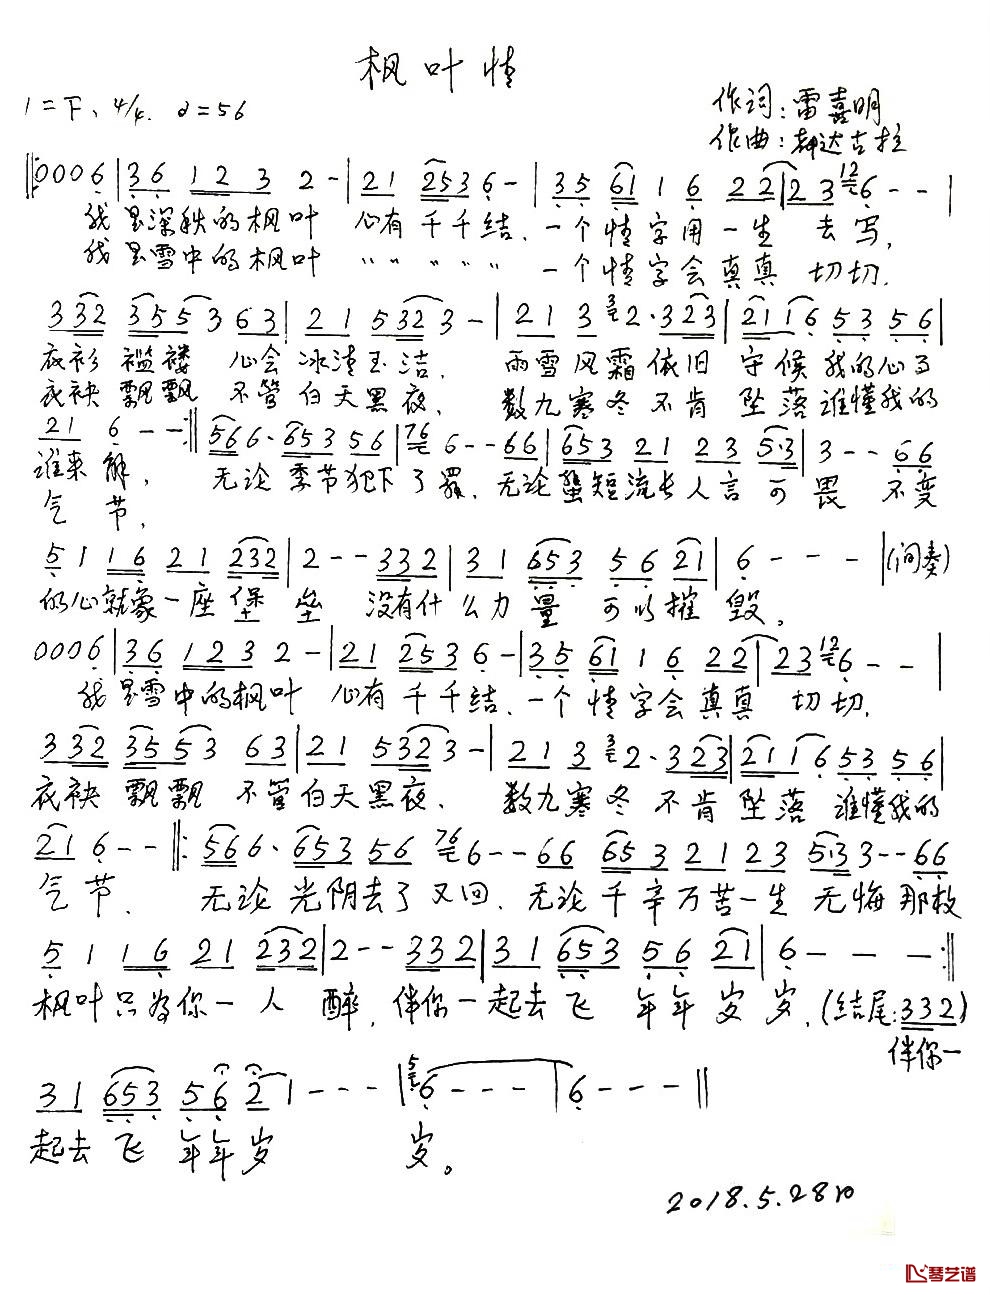 枫叶情
1=F、4/4. d=56
作词:雷喜明
作曲:都达古拉
0006|36 123 2-|21 2536-|35 61 1 6 22|23 126--|
我是深秋的枫叶 心有千千结.一个情字用一生 去写,
我是雪中的枫叶 〃〃〃〃〃 一个情字会真真 切切.
332 3553 63|21 5323-|21 3 32·323|2116 53 56|
衣衫褴褛 心会冰清玉洁. 雨雪风霜依旧 守候我的心事
衣袂飘飘 不管白天黑夜. 数九寒冬不肯 坠落谁懂我的
21 6--:||566·653 56|766--66|653 21 23 5·3|3--66
谁来解, 无论季节犯下了罪.无论蜚短流长人言可畏 不变
气节,
5 1 16 21 232|2--332|31 653 56 21|6---|(间奏)
的心就象一座堡垒 没有什么力量 可以摧毁。
0006|36 123 2-|21 2536-|35 61 1 6 22|23 126--|
我是雪中的枫叶 心有千千结.一个情字会真真 切切.
332 3553 63|21 5323-|21 3 32·323|2116 53 56|
衣袂飘飘 不管白天黑夜. 数九寒冬 不肯坠落 谁懂我的
21 6--||:566·653 56 766--66 653 21 23 5·33--66
气节. 无论光阴去了又回.无论千辛万苦一生无悔那枚
5 1 16 21 232|2--332|31 653 56 21|6---:||
枫叶只为你一人醉,伴你一起去飞 年年岁岁.(结尾:332)
伴你一
31 653 56 21---|56---6---||
起去飞 年年岁 岁。
2018.5.28日
琴艺谱